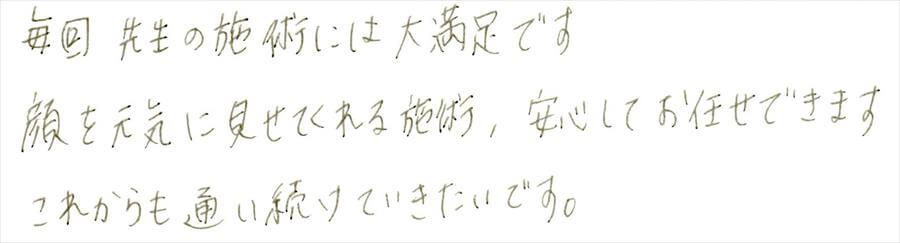 毎回 先生の施術には大満足です
顔を元気に見せてくれる施術, 安心してお任せできます
これからも通い続けていきたいです。